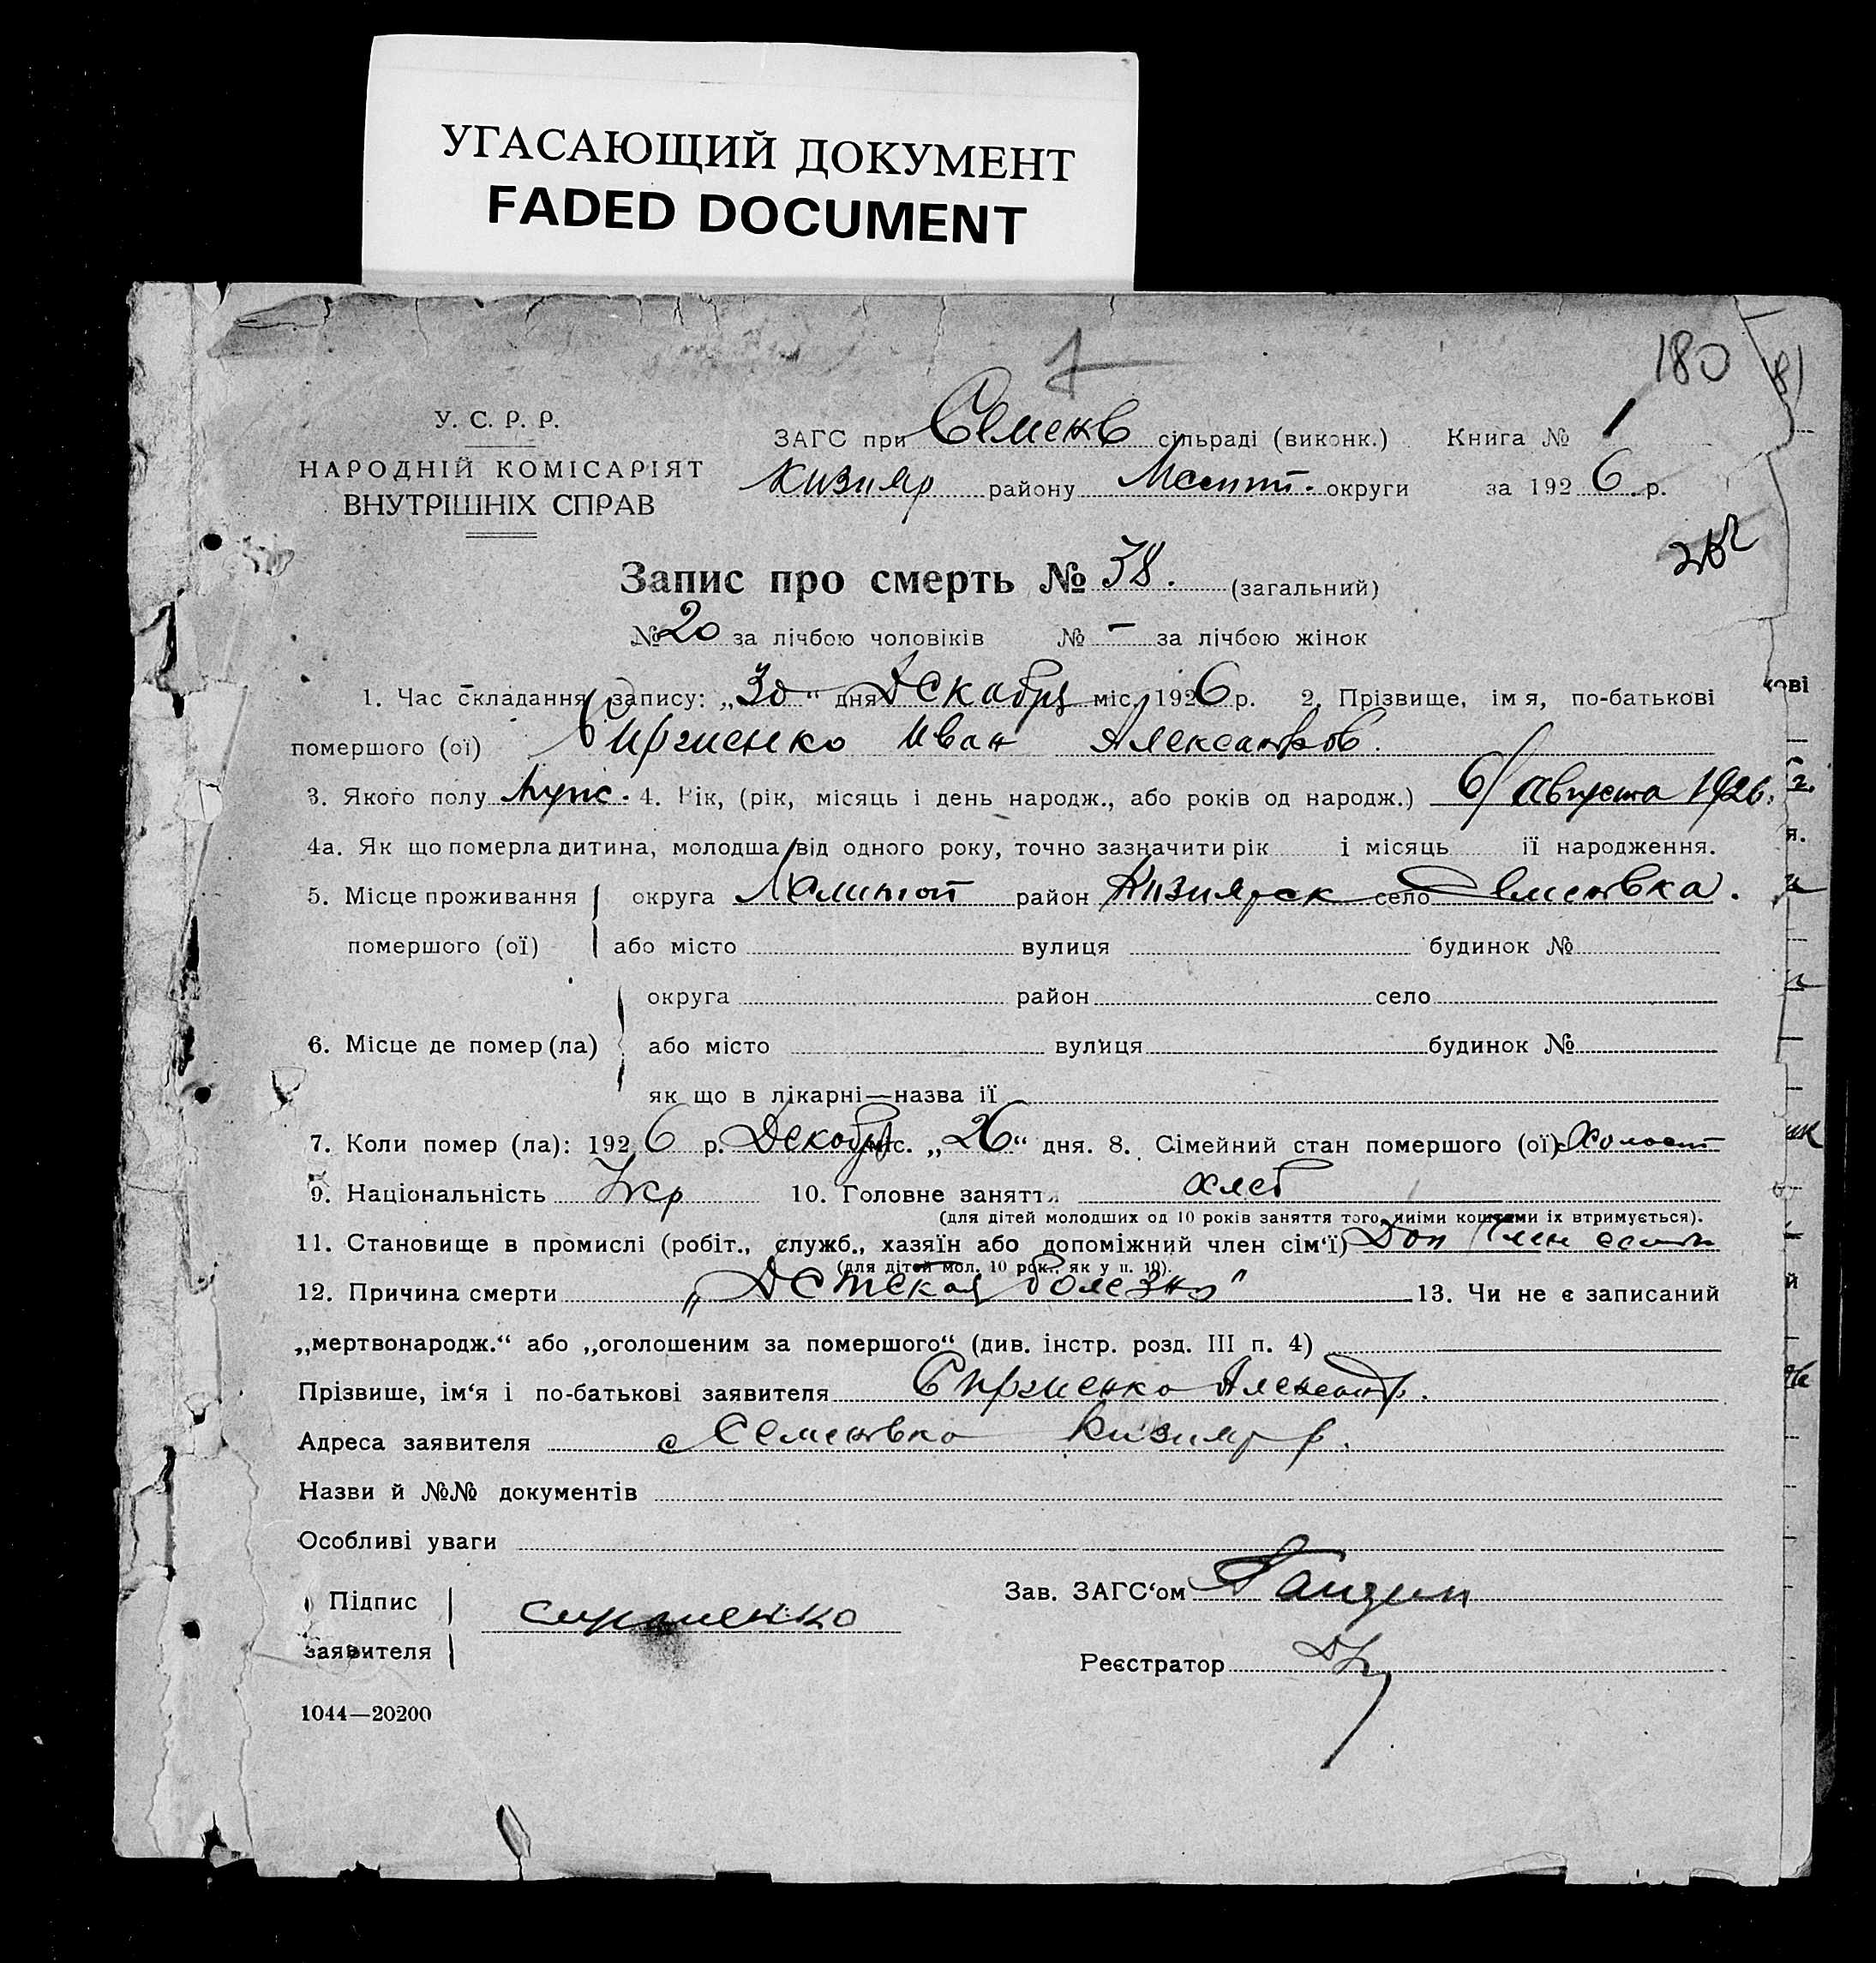 УГАСАЮЩИЙ ДОКУМЕНТ
FADED DOCUMENT
180
У. С. Р. Р.
НАРОДНІЙ КОМІСАРІЯТ
ВНУТРІШНІХ СПРАВ
ЗАГС при Семенв сільраді (виконк.) Книга № 1
Кизияр району Мелит. округи за 1926 р.
Запис про смерть № 38. (загальний)
№ 20 за лічбою чоловіків № – за лічбою жінок
1. Час складання запису: „30" дня Декабря міс. 1926 р. 2. Прізвище, імя, по-батькові
помершого (ої) Сиргиенко Иван Александров.
3. Якого полу Муж. 4. Вік, (рік, місяць і день народж., або років од народж.) 6/ Августа 1926.
4а. Як що померла дитина, молодша від одного року, точно зазначити рік і місяць її народження.
5. Місце проживання округа Мелитоп район Кизиярск село Семеновка.
помершого (ої) або місто вулиця будинок №
округа район село
6. Місце де помер (ла) або місто вулиця будинок №
як що в лікарні—назва її
7. Коли помер (ла): 1926 р. Декабря міс. „26" дня. 8. Сімейний стан помершого (ої) Холост
9. Національність Укр 10. Головне заняття хлеб
(для дітей молодших од 10 років заняття того, чиїми коштами їх втримується).
11. Становище в промислі (робіт., служб., хазяїн або допоміжний член сім'ї) Доп член семьи
(для дітей мол. 10 рок., як у п. 10).
12. Причина смерти „Детская болезнь" 13. Чи не є записаний
„мертвонародж." або „оголошеним за помершого" (див. інстр. розд. III п. 4)
Прізвище, ім'я і по-батькові заявителя Сиргиенко Александр.
Адреса заявителя с Семеновка Кизияр р.
Назви й №№ документів
Особливі уваги
Підпис
заявителя
сиргиенко
Зав. ЗАГС'ом
Реєстратор
1044—20200